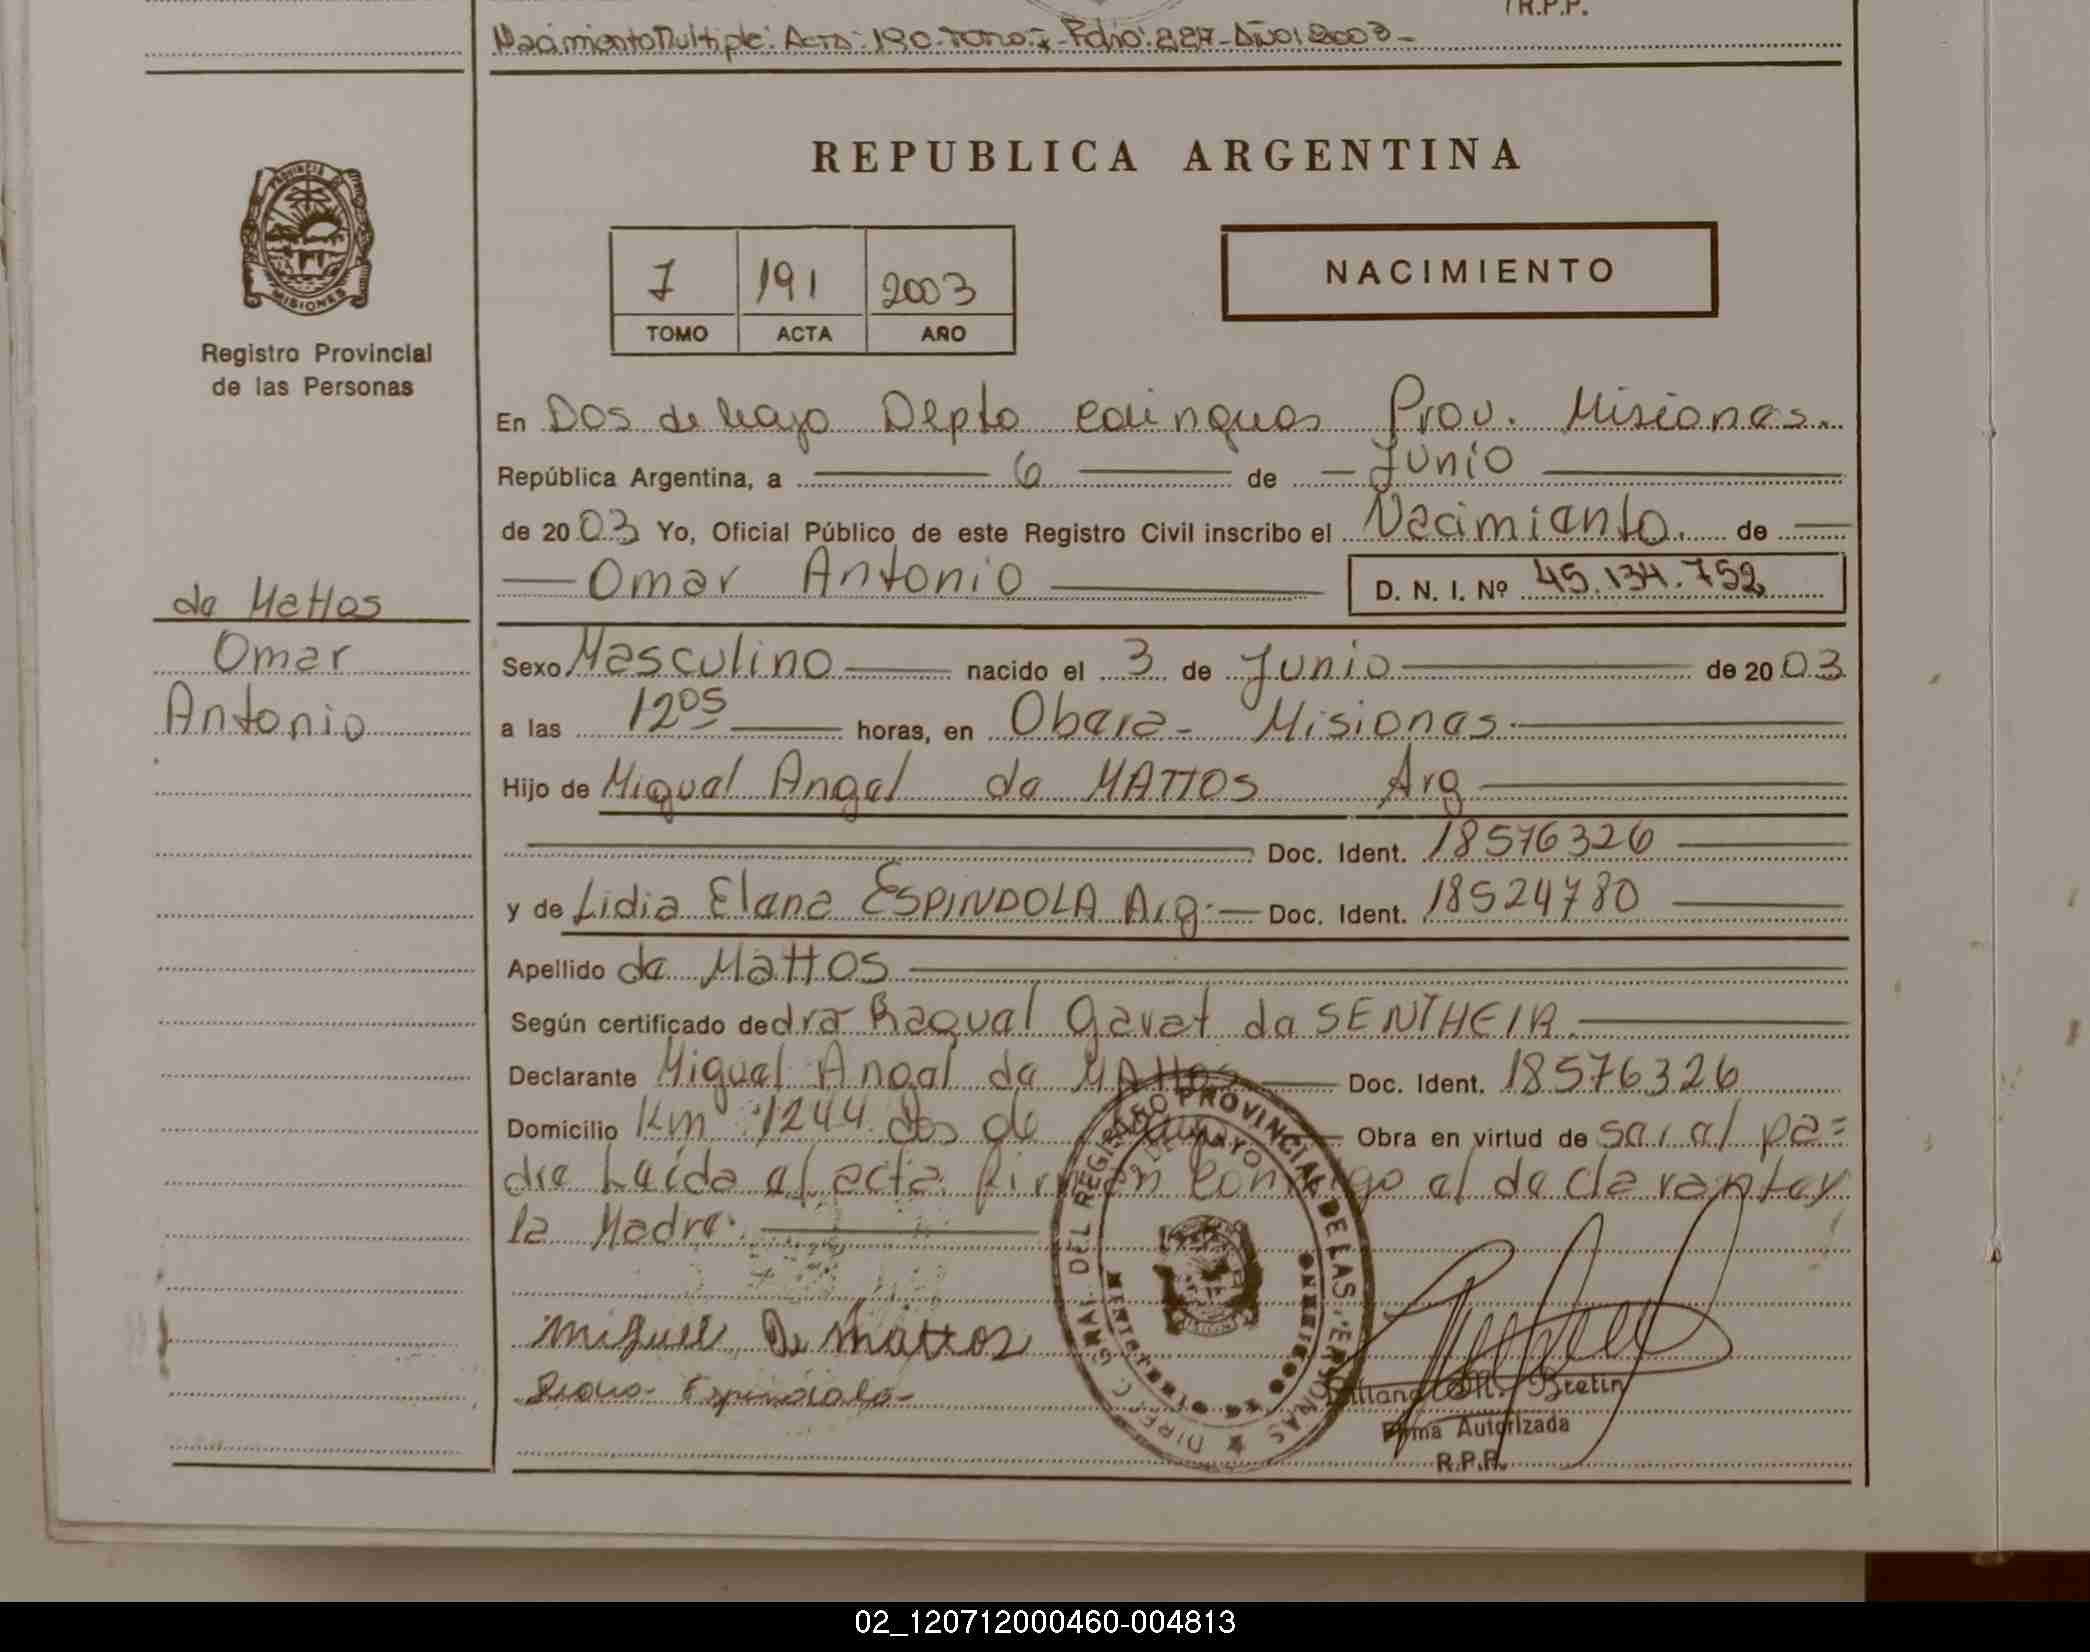 R.P.P.
Nacimiento Multiple: Acta: 190 - Tomo: I - Folio: 227 - Año: 2003 -
REPUBLICA ARGENTINA
PROVINCIA DE
MISIONES
Registro Provincial
de las Personas
I 191 2003
TOMO ACTA AÑO
NACIMIENTO
En Dos de Mayo Depto Cainguas Prov. Misiones.
República Argentina, a 6 de Junio
de 20 03 Yo, Oficial Público de este Registro Civil inscribo el Nacimiento. de
Omar Antonio D. N. I. Nº 45.134.752
de Mattos
Omar
Antonio
Sexo Masculino nacido el 3 de Junio de 20 03
a las 12 05 horas, en Obera - Misiones
Hijo de Miguel Angel de MATTOS Arg
Doc. Ident. 18576326
y de Lidia Elena ESPINDOLA Arg. Doc. Ident. 18524780
Apellido de Mattos
Según certificado de dra Raquel Gavet de SENTHEIR
Declarante Miguel Angel de MAttos Doc. Ident. 18576326
Domicilio Km 1244 dos de Mayo Obra en virtud de ser el pa=
dre Leída el acta firman conmigo el declarante y
la Madre.
DIREC. GRAL. DEL REGISTRO PROVINCIAL DE LAS PERSONAS
2 DE MAYO
Miguel De mattos
Espindola
M. Bretin
Firma Autorizada
R.P.P.
02_120712000460-004813